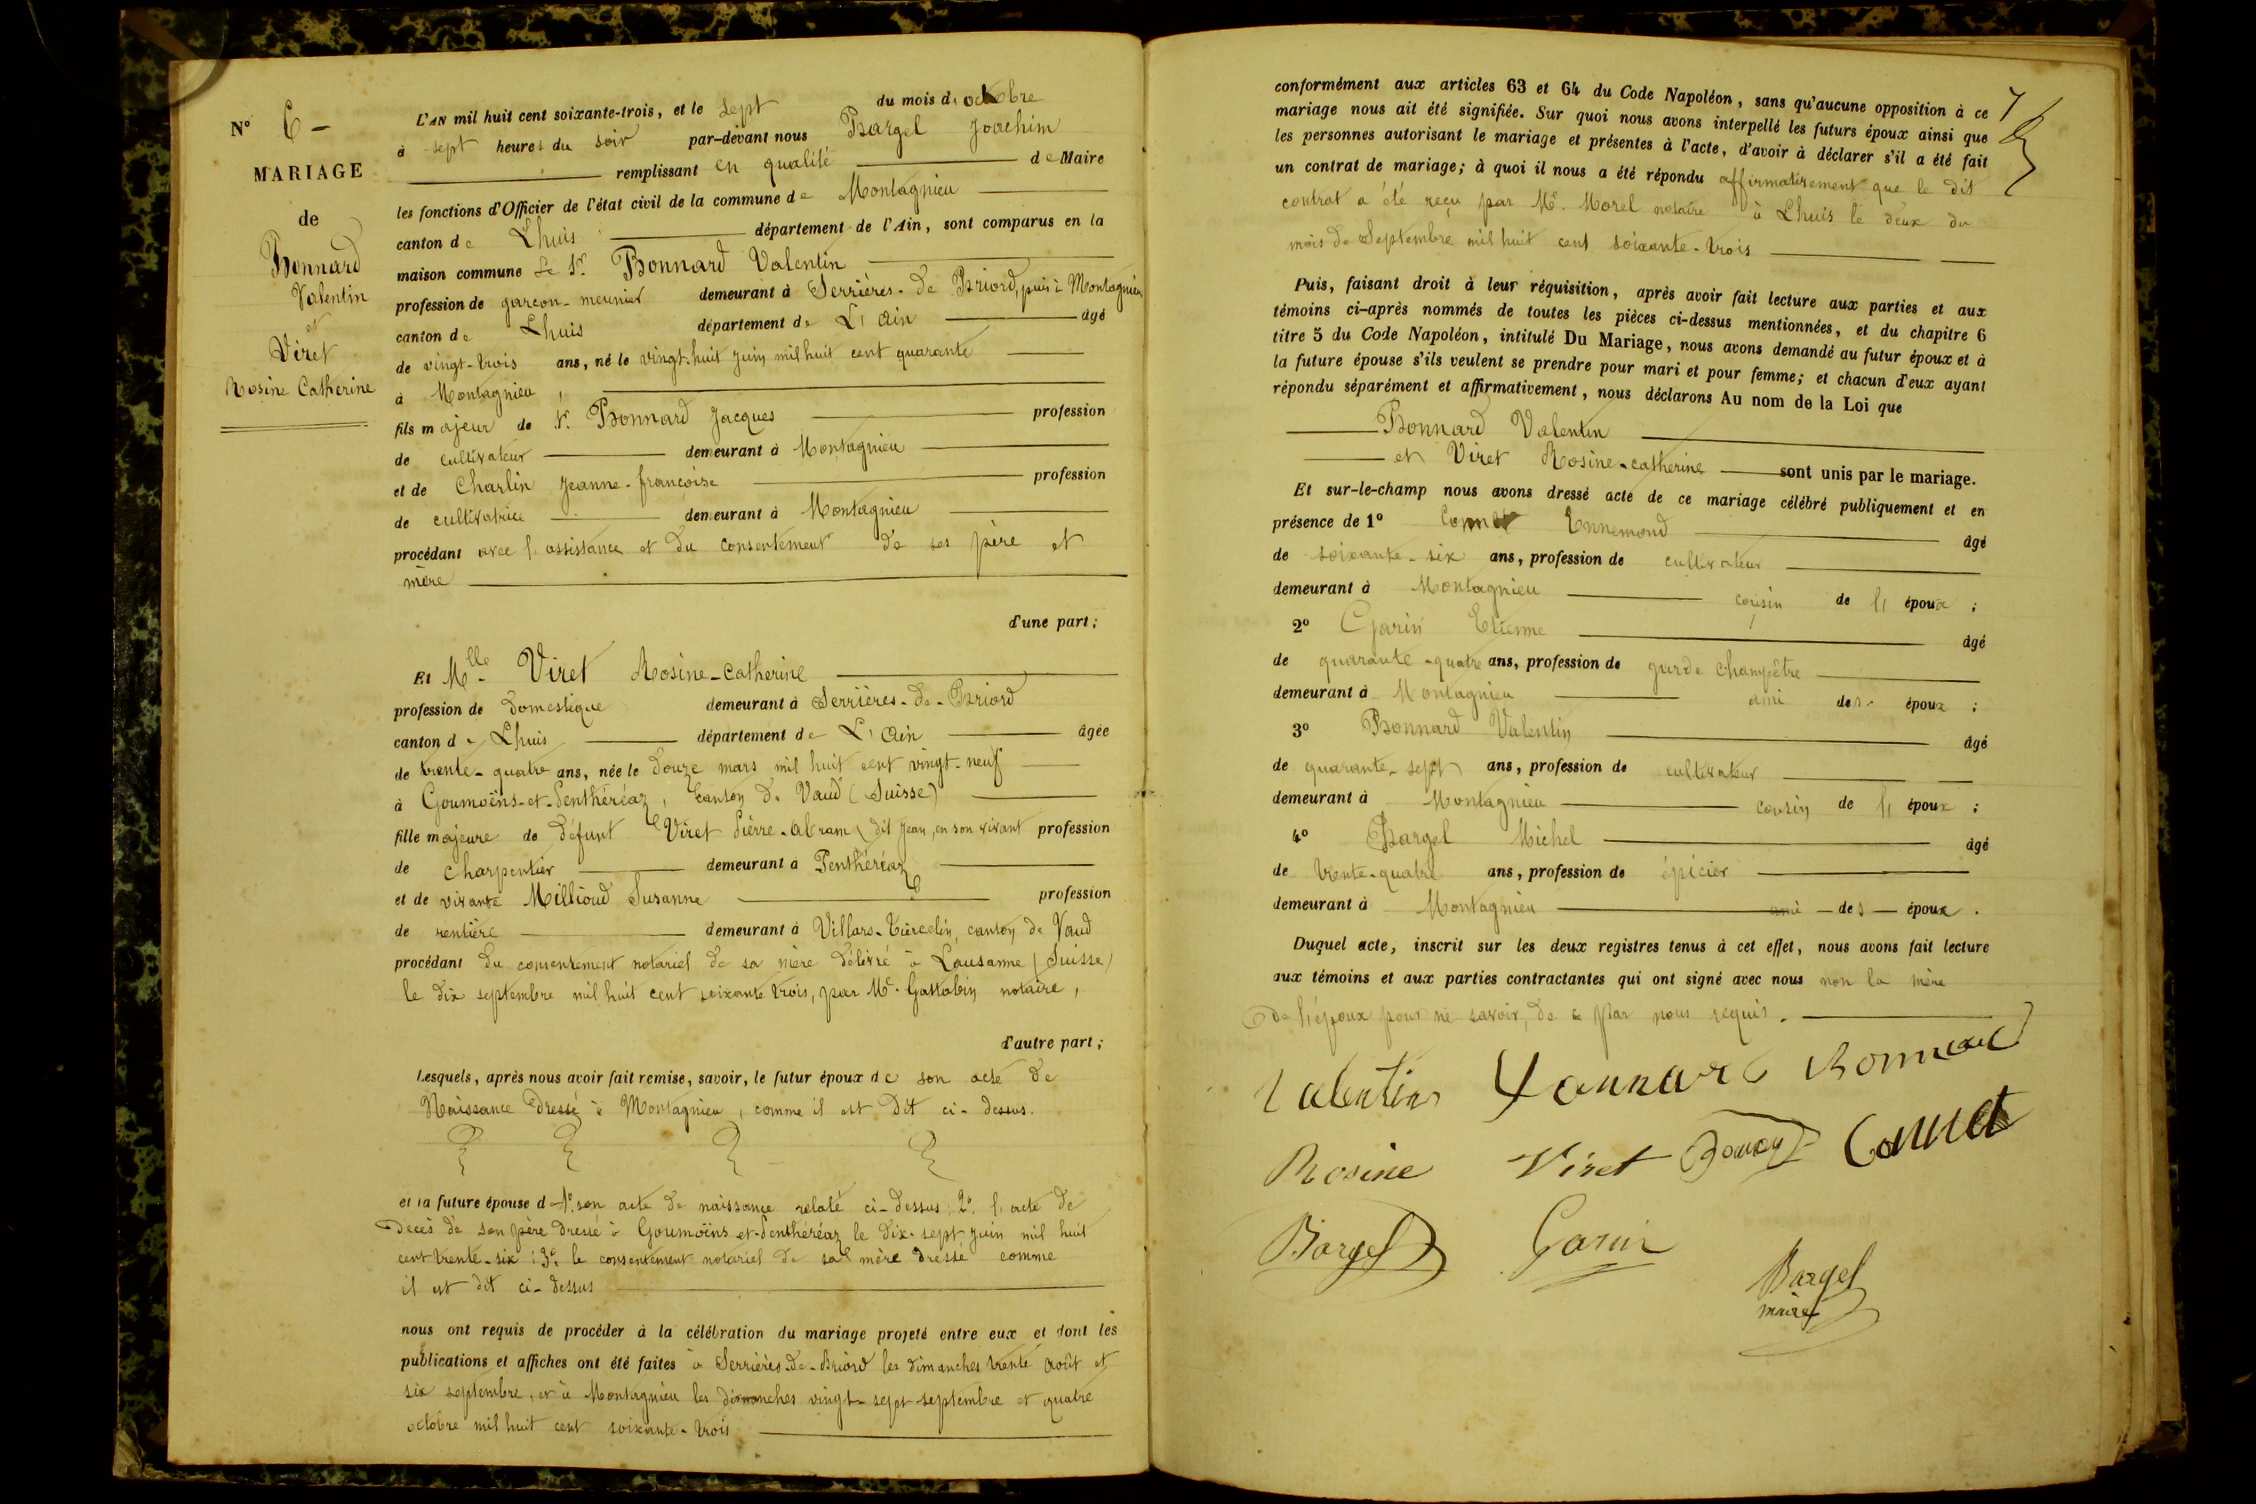 N° 6 -
MARIAGE
de
Bonnard
Valentin
et
Viret
Rosine Catherine
L'AN mil huit cent soixante-trois, et le sept du mois d'octobre
à sept heures du soir par-devant nous Bargel Joachim
remplissant en qualité de Maire
les fonctions d'Officier de l'état civil de la commune de Montagnieu
canton de Lhuis département de l'Ain, sont comparus en la
maison commune Le Sr. Bonnard Valentin
profession de garçon-meunier demeurant à Serrières-de-Briord, puis à Montagnieu
canton de Lhuis département de L'Ain âgé
de vingt-trois ans, né le vingt-huit juin mil huit cent quarante
à Montagnieu,
fils majeur de Sr. Bonnard Jacques profession
de cultivateur demeurant à Montagnieu
et de Charlin Jeanne-françoise profession
de cultivatrice demeurant à Montagnieu
procédant avec l'assistance et du consentement de ses père et
mère
d'une part;
Et Mlle Viret Rosine-Catherine
profession de domestique demeurant à Serrières-de-Briord
canton de Lhuis département de L'Ain âgée
de trente-quatre ans, née le douze mars mil huit cent vingt-neuf
à Goumoëns-et-Penthéréaz, Canton de Vaud (Suisse)
fille majeure de défunt Viret Pierre-Abram, dit Jean, en son vivant profession
de charpentier demeurant à Penthéréaz
et de vivante Millioud Susanne profession
de rentière demeurant à Villars-Tiercelin, canton de Vaud
procédant du consentement notariel de sa mère délivré à Lausanne (Suisse)
le dix septembre mil huit cent soixante trois, par Me. notaire,
d'autre part;
Lesquels, après nous avoir fait remise, savoir, le futur époux de son acte de
Naissance dressé à Montagnieu, comme il est dit ci-dessus.
et la future épouse d 1° son acte de naissance relaté ci-dessus; 2° l'acte de
Décès de son père dressé à Goumoëns-et-Penthéréaz le dix-sept juin mil huit
cent trente-six; 3° le consentement notariel de sa mère dressé comme
il est dit ci-dessus
nous ont requis de procéder à la célébration du mariage projeté entre eux et dont les
publications et affiches ont été faites à Serrières-de-Briord les dimanches trente août et
six septembre, et à Montagnieu les dimanches vingt-sept septembre et quatre
octobre mil huit cent soixante-trois
conformément aux articles 63 et 64 du Code Napoléon, sans qu'aucune opposition à ce
mariage nous ait été signifiée. Sur quoi nous avons interpellé les futurs époux ainsi que
les personnes autorisant le mariage et présentes à l'acte, d'avoir à déclarer s'il a été fait
un contrat de mariage; à quoi il nous a été répondu affirmativement que le dit
contrat a été reçu par Me. Morel notaire à Lhuis le deux du
mois de Septembre mil huit cent soixante-trois
Puis, faisant droit à leur réquisition, après avoir fait lecture aux parties et aux
témoins ci-après nommés de toutes les pièces ci-dessus mentionnées, et du chapitre 6
titre 5 du Code Napoléon, intitulé Du Mariage, nous avons demandé au futur époux et à
la future épouse s'ils veulent se prendre pour mari et pour femme; et chacun d'eux ayant
répondu séparément et affirmativement, nous déclarons Au nom de la Loi que
Bonnard Valentin
et Viret Rosine-catherine sont unis par le mariage.
Et sur-le-champ nous avons dressé acte de ce mariage célébré publiquement et en
présence de 1° Connet Ennemond âgé
de soixante-six ans, profession de cultivateur
demeurant à Montagnieu cousin de l'époux;
2° Garin Etienne âgé
de quarante-quatre ans, profession de garde champêtre
demeurant à Montagnieu ami des époux;
3° Bonnard Valentin âgé
de quarante-sept ans, profession de cultivateur
demeurant à Montagnieu cousin de l'époux;
4° Bargel Michel âgé
de trente-quatre ans, profession de épicier
demeurant à Montagnieu ami des époux.
Duquel acte, inscrit sur les deux registres tenus à cet effet, nous avons fait lecture
aux témoins et aux parties contractantes qui ont signé avec nous non la mère
de l'époux pour ne savoir, de ce par nous requis.
Valentin Bonnard Bonnard
Rosine Viret Connet
Bargel Garin
Bargel
maire